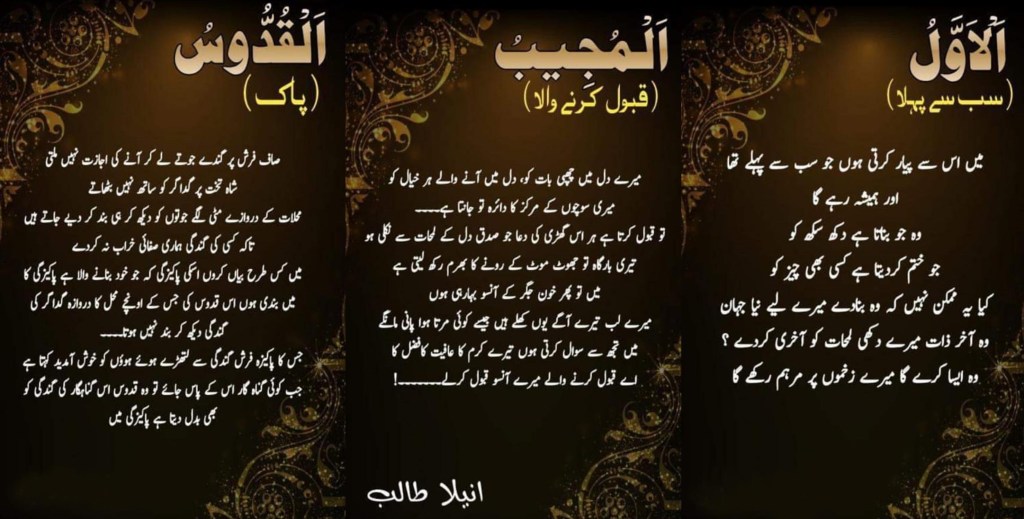 اَلْاَوَّلُ
(سب سے پہلا)
میں اس سے پیار کرتی ہوں جو سب سے پہلے تھا
اور ہمیشہ رہے گا
وہ جو بناتا ہے دکھ سکھ کو
جو ختم کردیتا ہے کسی بھی چیز کو
کیا یہ ممکن نہیں کہ وہ بنادے میرے لیے نیا جہان
وہ آخر ذات میرے دکھی لمحات کو آخری کردے ؟
وہ ایسا کرے گا میرے زخموں پر مرہم رکھے گا
اَلْمُجِیبُ
(قبول کرنے والا)
میرے دل میں چھپی بات کو، دل میں آنے والے ہر خیال کو
میری سوچوں کے مرکز کا دائرہ تو جانتا ہے۔۔۔۔
تو قبول کرتا ہے ہر اس گھڑی کی دعا جو صدق دل کے لمحات سے نکلی ہو
تیری بارگاہ تو جھوٹ موٹ کے رونے کا بھرم رکھ لیتی ہے
میں تو پھر خون جگر کے آنسو بہارہی ہوں
میرے لب تیرے آگے یوں کھلے ہیں جیسے کوئی مرتا ہوا پانی مانگے
میں تجھ سے سوال کرتی ہوں تیرے کرم کا عافیت کافضل کا
اے قبول کرنے والے میرے آنسو قبول کرلے۔۔۔۔۔۔۔!
انیلا طالب
اَلْقُدُّوسُ
(پاک)
صاف فرش پر گندے جوتے لے کر آنے کی اجازت نہیں ملتی
شاہ تخت پر گداگر کو ساتھ نہیں بٹھاتے
محلات کے دروازے مٹی لگے جوتوں کو دیکھ کر ہی بند کر دیے جاتے ہیں
تاکہ کسی کی گندگی ہماری صفائی خراب نہ کردے
میں کس طرح بیاں کروں اسکی پاکیزگی کہ جو خود بنانے والا ہے پاکیزگی کا
میں بندی ہوں اس قدوس کی جس کے اونچے محل کا دروازہ گداگر کی
گندگی دیکھ کر بند نہیں ہوتا۔۔۔۔
جس کا پاکیزہ فرش گندگی سے لتھڑے ہوئے ہوؤں کو خوش آمدید کہتا ہے
جب کوئی گناہ گار اس کے پاس جائے تو وہ قدوس اس گناہگار کی گندگی کو
بھی بدل دیتا ہے پاکیزگی میں